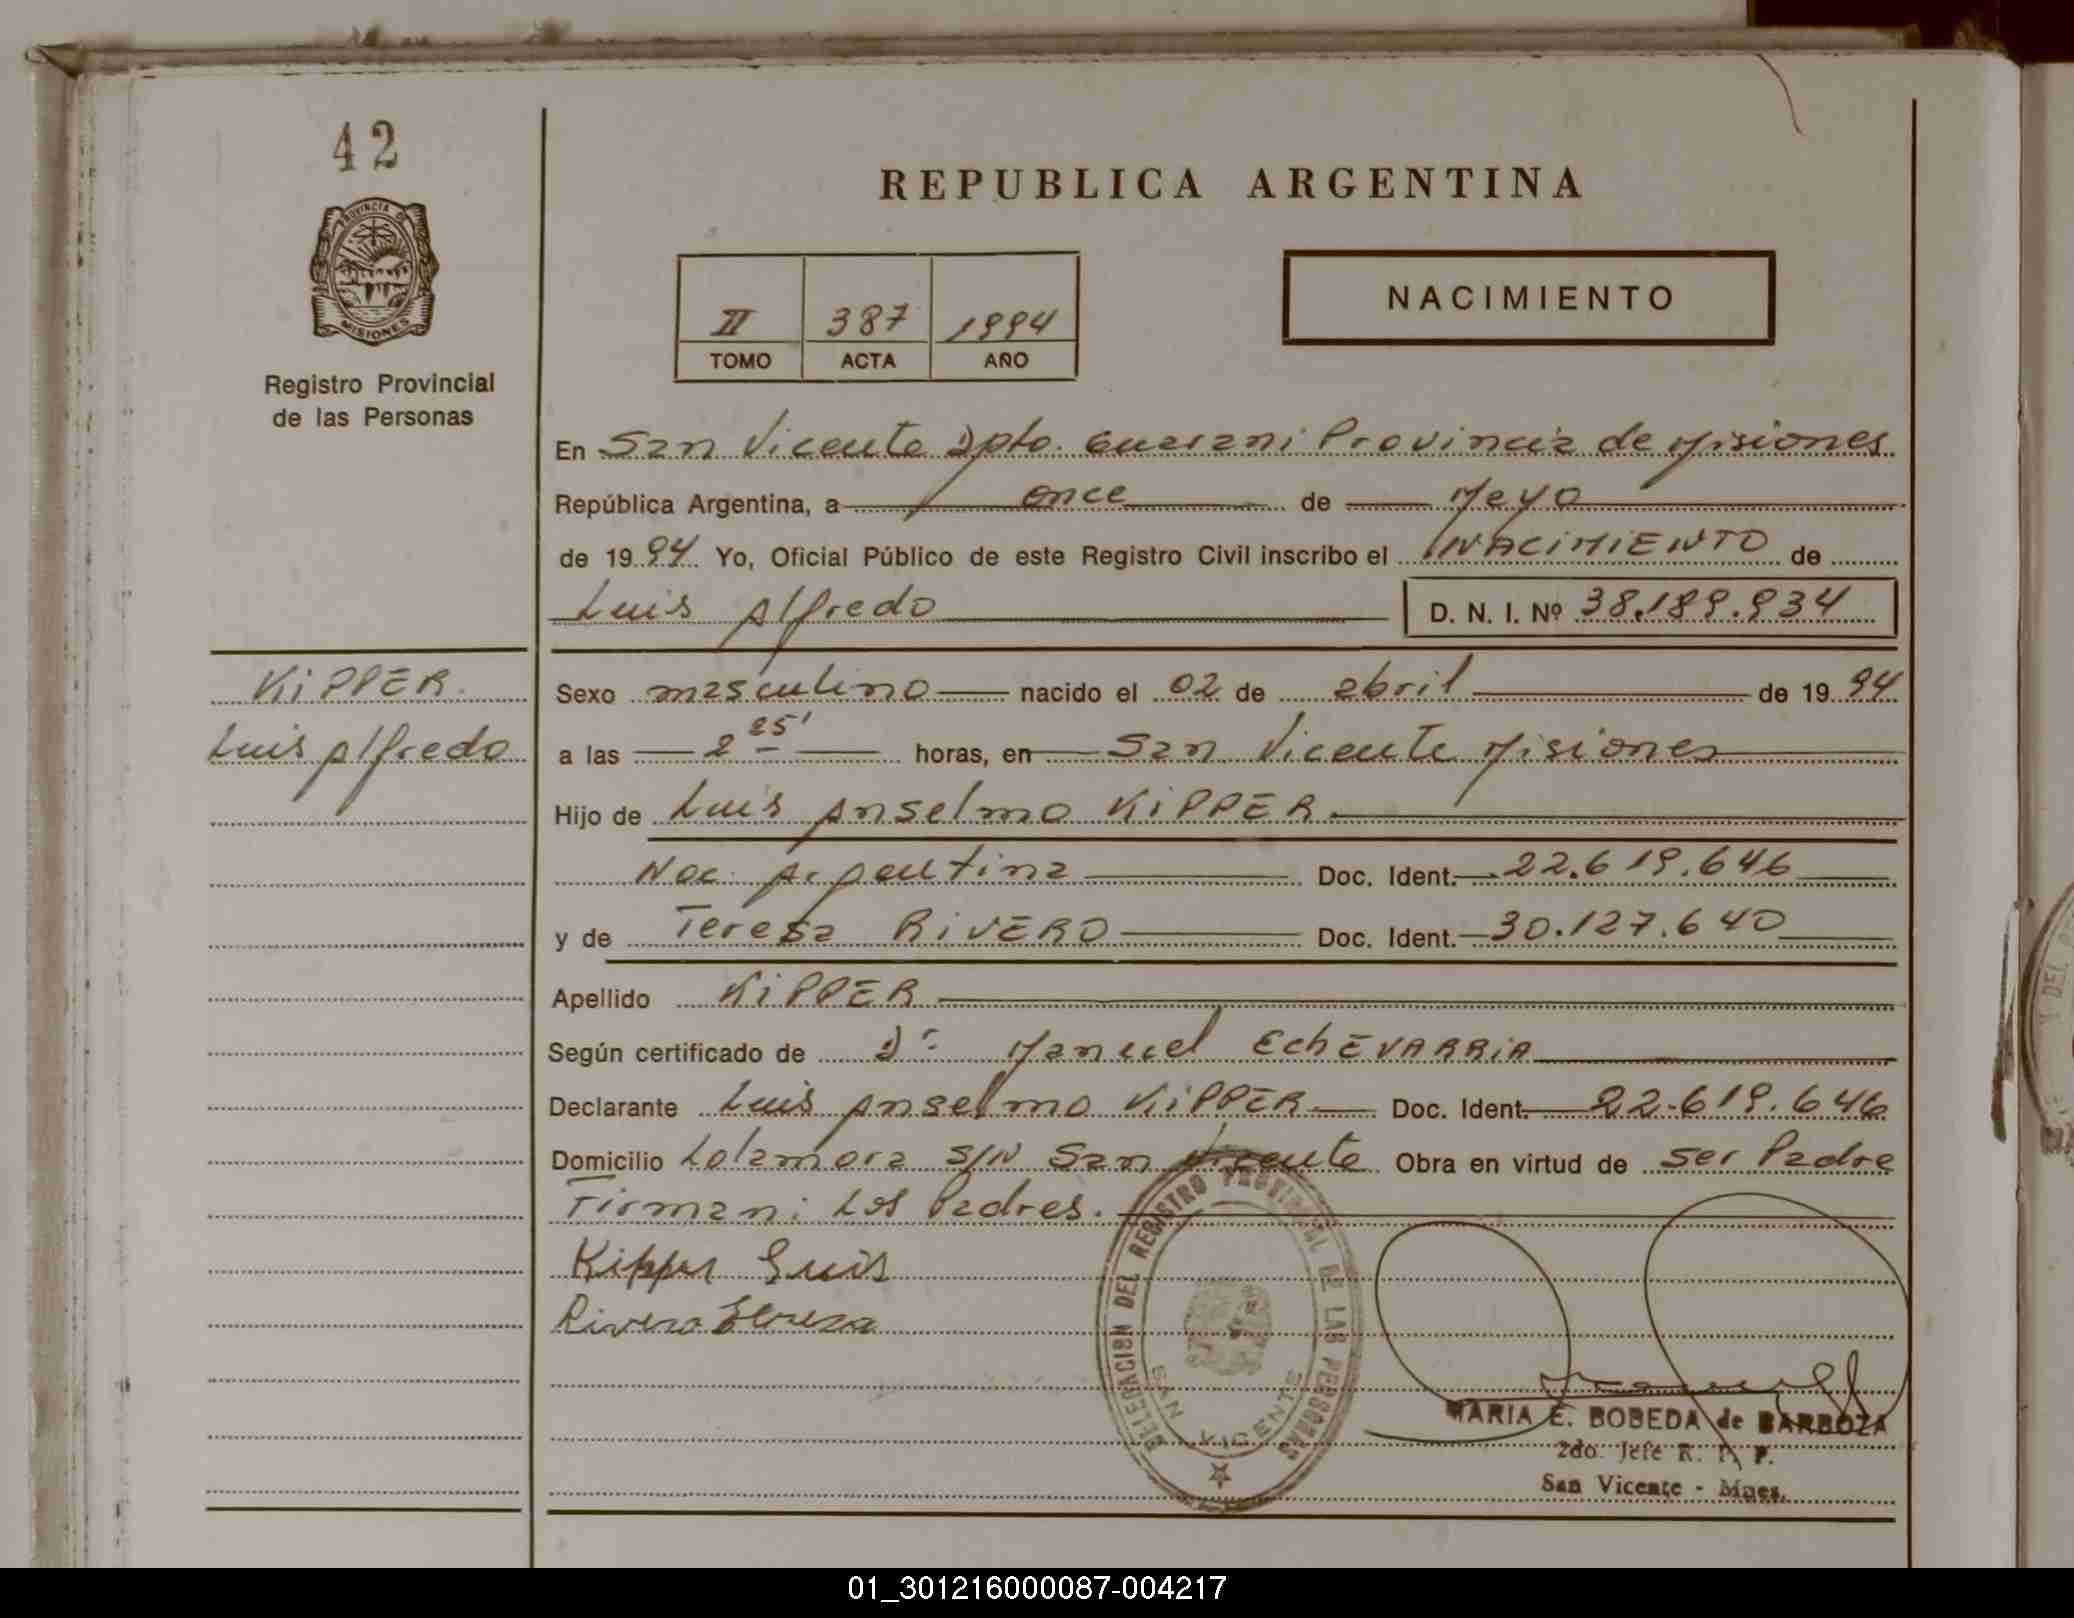 42
PROVINCIA DE
MISIONES
Registro Provincial
de las Personas
REPUBLICA ARGENTINA
NACIMIENTO
II 387 1994
TOMO ACTA AÑO
En San Vicente Dpto. Guarani Provincia de Misiones
República Argentina, a once de Mayo
de 1994 Yo, Oficial Público de este Registro Civil inscribo el NACIMIENTO de
Luis Alfredo D. N. I. Nº 38.189.934
KIPPER
Luis Alfredo
Sexo masculino nacido el 02 de abril de 1994
a las 2 25' horas, en San Vicente Misiones
Hijo de Luis Anselmo KIPPER
Nac. Argentina Doc. Ident. 22.619.646
y de Teresa RIVERO Doc. Ident. 30.127.640
Apellido KIPPER
Según certificado de Dr. Manuel EChEVARRIA
Declarante Luis Anselmo KIPPER Doc. Ident. 22.619.646
Domicilio Lolamora S/N San Vicente Obra en virtud de ser Padre
Firman: Los Padres.
Kipper Luis
Rivero Teresa
DELEGACION DEL REGISTRO PROVINCIAL DE LAS PERSONAS
SAN VICENTE
MARIA E. BOBEDA de BARBOZA
2do. Jefe R. P. P.
San Vicente - Mnes.
01_301216000087-004217